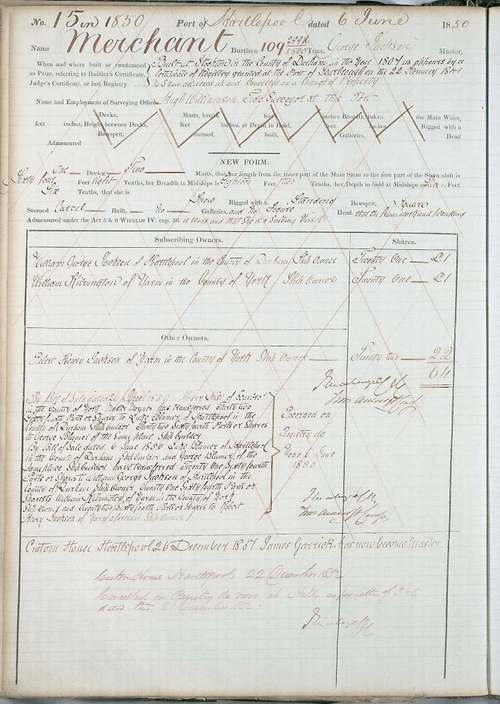 No. 15 in 1850 Port of Hartlepool dated 6 June 1850
Name Merchant Burthen 109 Tons, George Jackson Master,
When and where built or condemned
as Prize, referring to Builder's Certificate,
Judge's Certificate, or last Registry
Built at Stockton in the County of Durham in the Year 1807 as appears by a
Certificate of Registry granted at the Port of Scarborough on the 22 February 1841
Name and Employment of Surveying Officer Hugh Williamson Tide Surveyor at this Port
Decks, Masts, length inches, Breadth taken the Main Wales,
feet inches, Height between Decks, feet inches, or Depth in Hold, feet inches, Rigged with a
Bowsprit, Sterned, built, Galleries, Head
Admeasured
NEW FORM.
One Deck Two Masts, that her length from the inner part of the Main Stem to the fore part of the Stern aloft is
Sixty four Feet eight Tenths, her Breadth in Midships is Eighteen Feet two Tenths, her Depth in hold at Midships is Feet
Six Tenths, that she is Snow Rigged with a Standing Bowsprit, Square
Sterned Carvel Built, No Galleries, and No Figure Head, that the framework and planking
Admeasured under the Act 5 & 6 WILLIAM IV. cap. 56. is Wood and that She is a Sailing Vessel
Subscribing Owners. Shares.
William George Jackson of Hartlepool in the County of Durham Ship Owner Twenty One 21
William Kilvington of Yarm in the County of York Ship Owner Twenty One 21
Other Owners.
Robert Henry Jackson of Yarm in the County of York Ship Owner Twenty two 22
64
By Bill of Sale dated 29 April
in the County of York Master Mariner has transferred Thirty two
Sixty fourth Parts or Shares to Luke Blumer of Hartlepool in the
County of Durham Shipbuilder Thirty two Sixty fourth Parts or Shares
to George Blumer of the same place Ship builder
By Bill of Sale dated 6 June 1850 Luke Blumer of Hartlepool
in the County of Durham Ship builder and George Blumer of the
same place Ship builder have transferred Twenty One Sixty fourth
Parts or Shares to William George Jackson of Hartlepool in the
County of Durham Ship Owner Twenty One Sixty fourth Parts or
Shares to William Kilvington of Yarm in the County of York
Ship Owner and Twenty two Sixty fourth Parts or Shares to Robert
Henry Jackson of Yarm aforesaid Ship Owner
Endorsed on
Registry de
Novo 6 June
1850
Custom House Hartlepool 26 December 1851 James Garrick has now become Master
Custom House Hartlepool 22 December 1852
Cancelled on Registry de novo at
dated this 21 December 1852